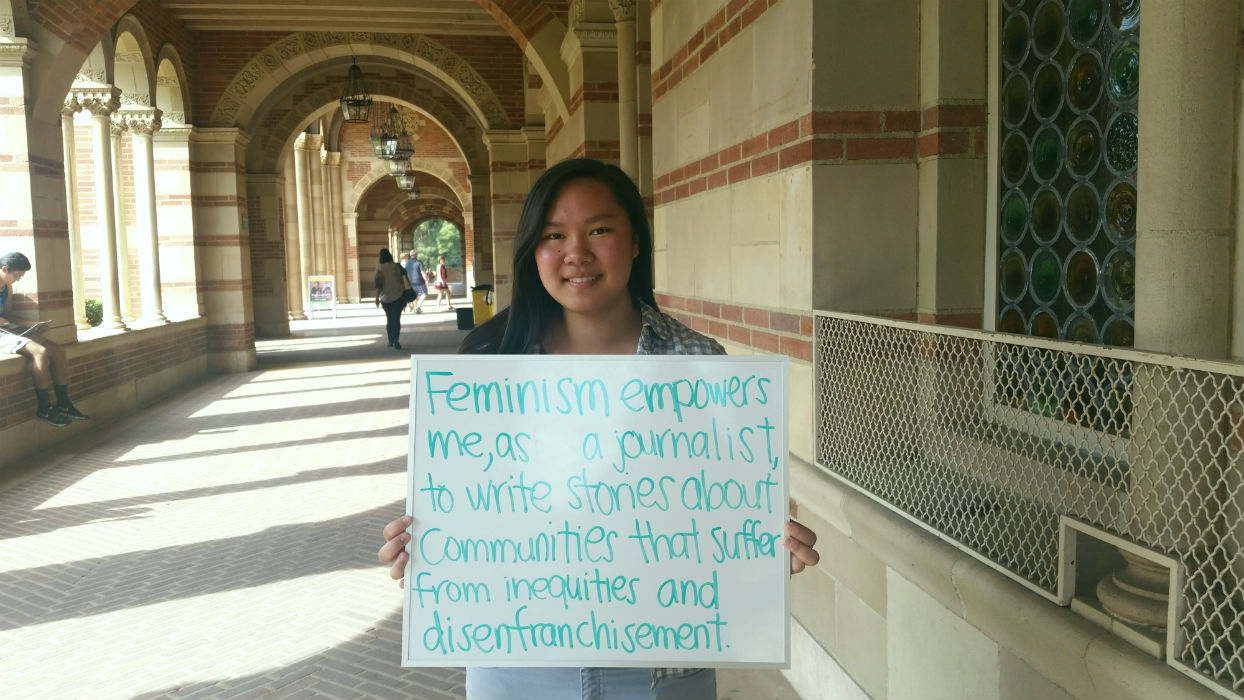 Feminism empowers
me, as a journalist,
to write stories about
Communities that suffer
from inequities and
disenfranchisement.